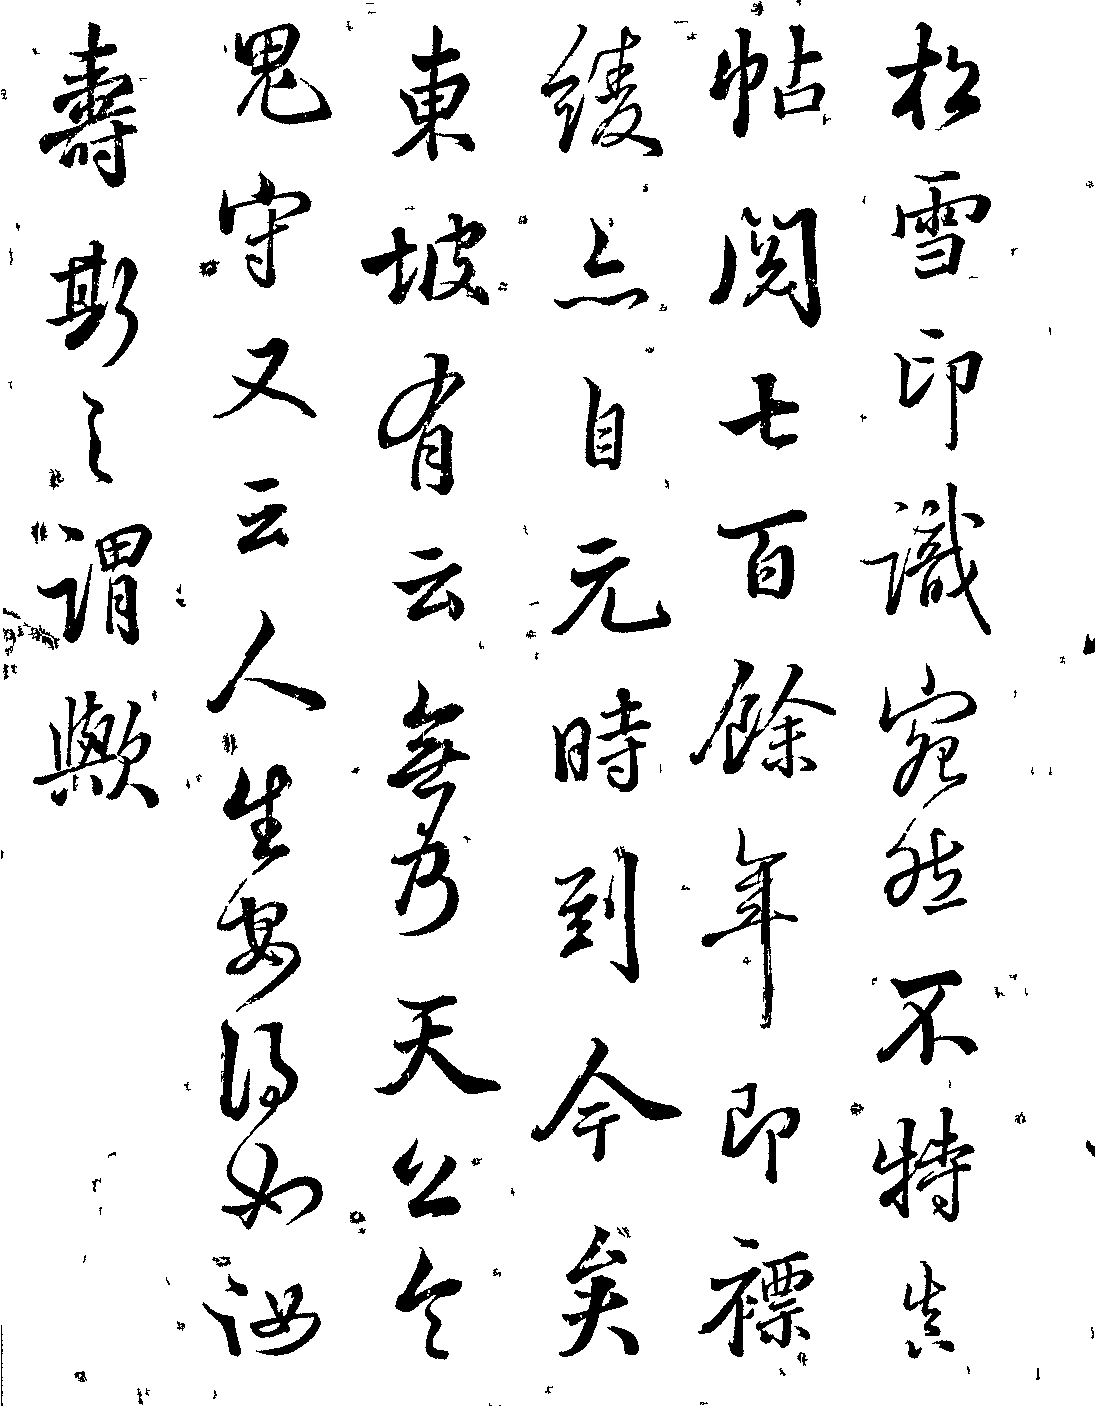 松雪印識宛然不特真
帖閲七百餘年即褾
綾亦自元時到今矣
東坡有云無乃天公令
鬼守又云人生安得如汝
壽斯之謂歟